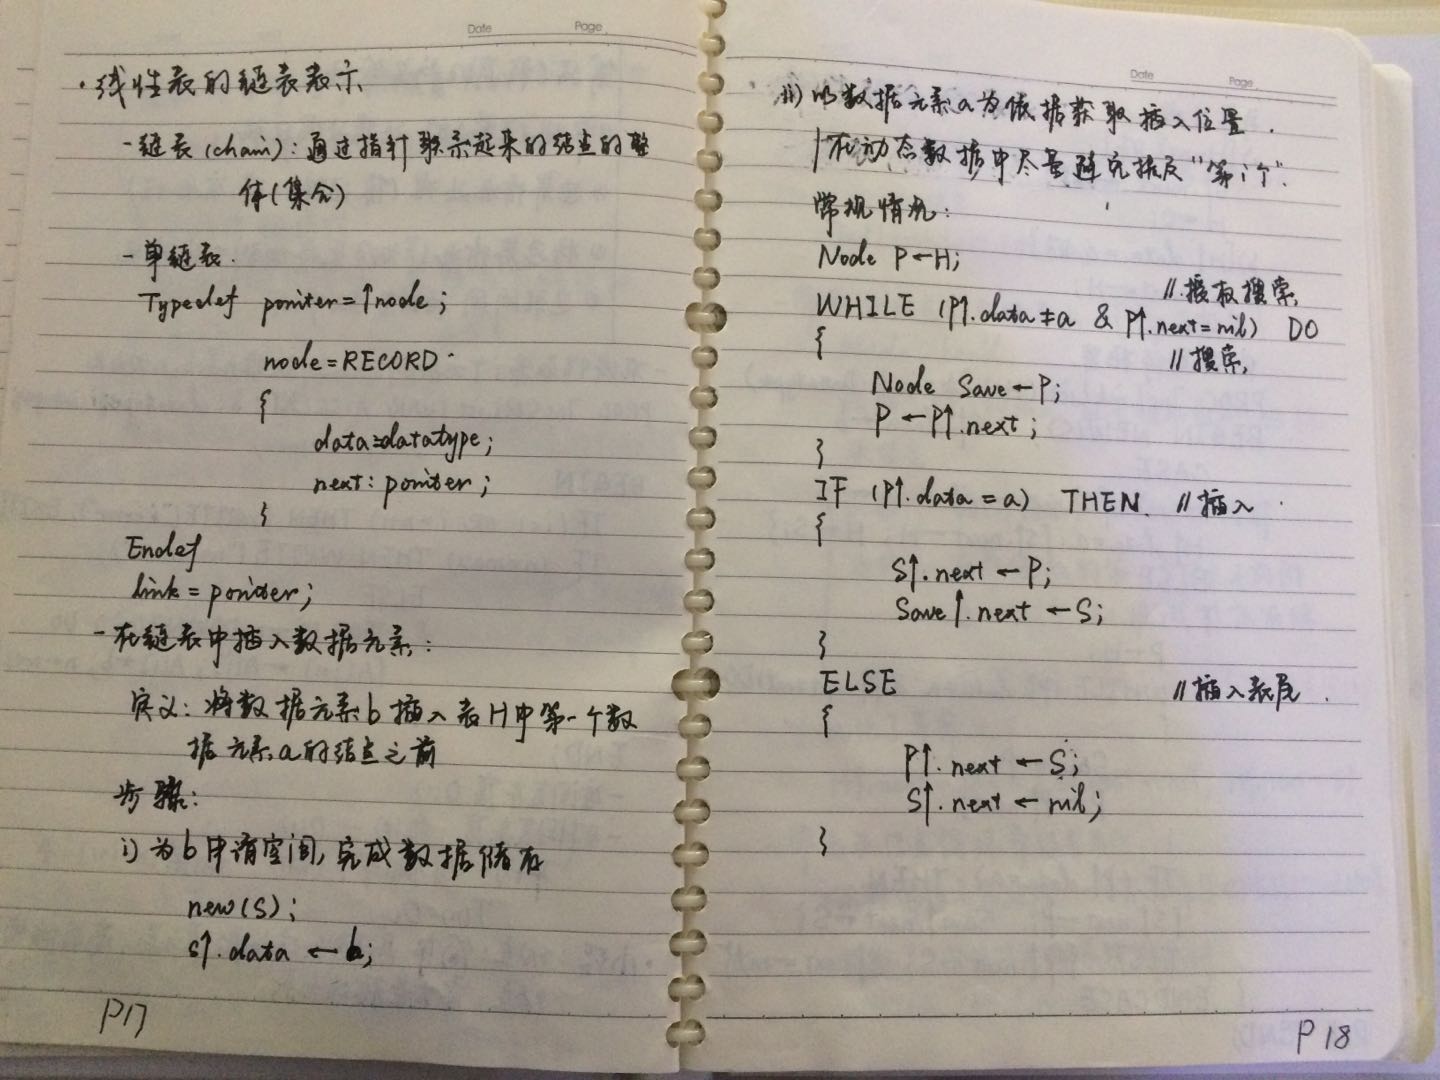 Date Page
·线性表的链表表示
-链表(chain):通过指针联系起来的结点的整
体(集合)
-单链表.
Typedef poniter=↑node;
node=RECORD
{
data=datatype;
next: poniter;
}
Endef
link=poniter;
-在链表中插入数据元素:
定义:将数据元素b插入表H中第一个数
据元素a的结点之前
步骤:
i)为b申请空间,完成数据储存
new(S);
S↑.data←b;
P17
Date Page
ii)以数据元素a为依据获取插入位置.
在动态数据中尽量避免提及"第i个".
常规情况:
Node P←H;
//授权搜索
WHILE (P↑.data≠a & P↑.next=nil) DO
{ //搜索
Node Save←P;
P←P↑.next;
}
IF (P↑.data=a) THEN //插入
{
S↑.next←P;
Save↑.next←S;
}
ELSE //插入表尾.
{
P↑.next←S;
S↑.next←nil;
}
P18